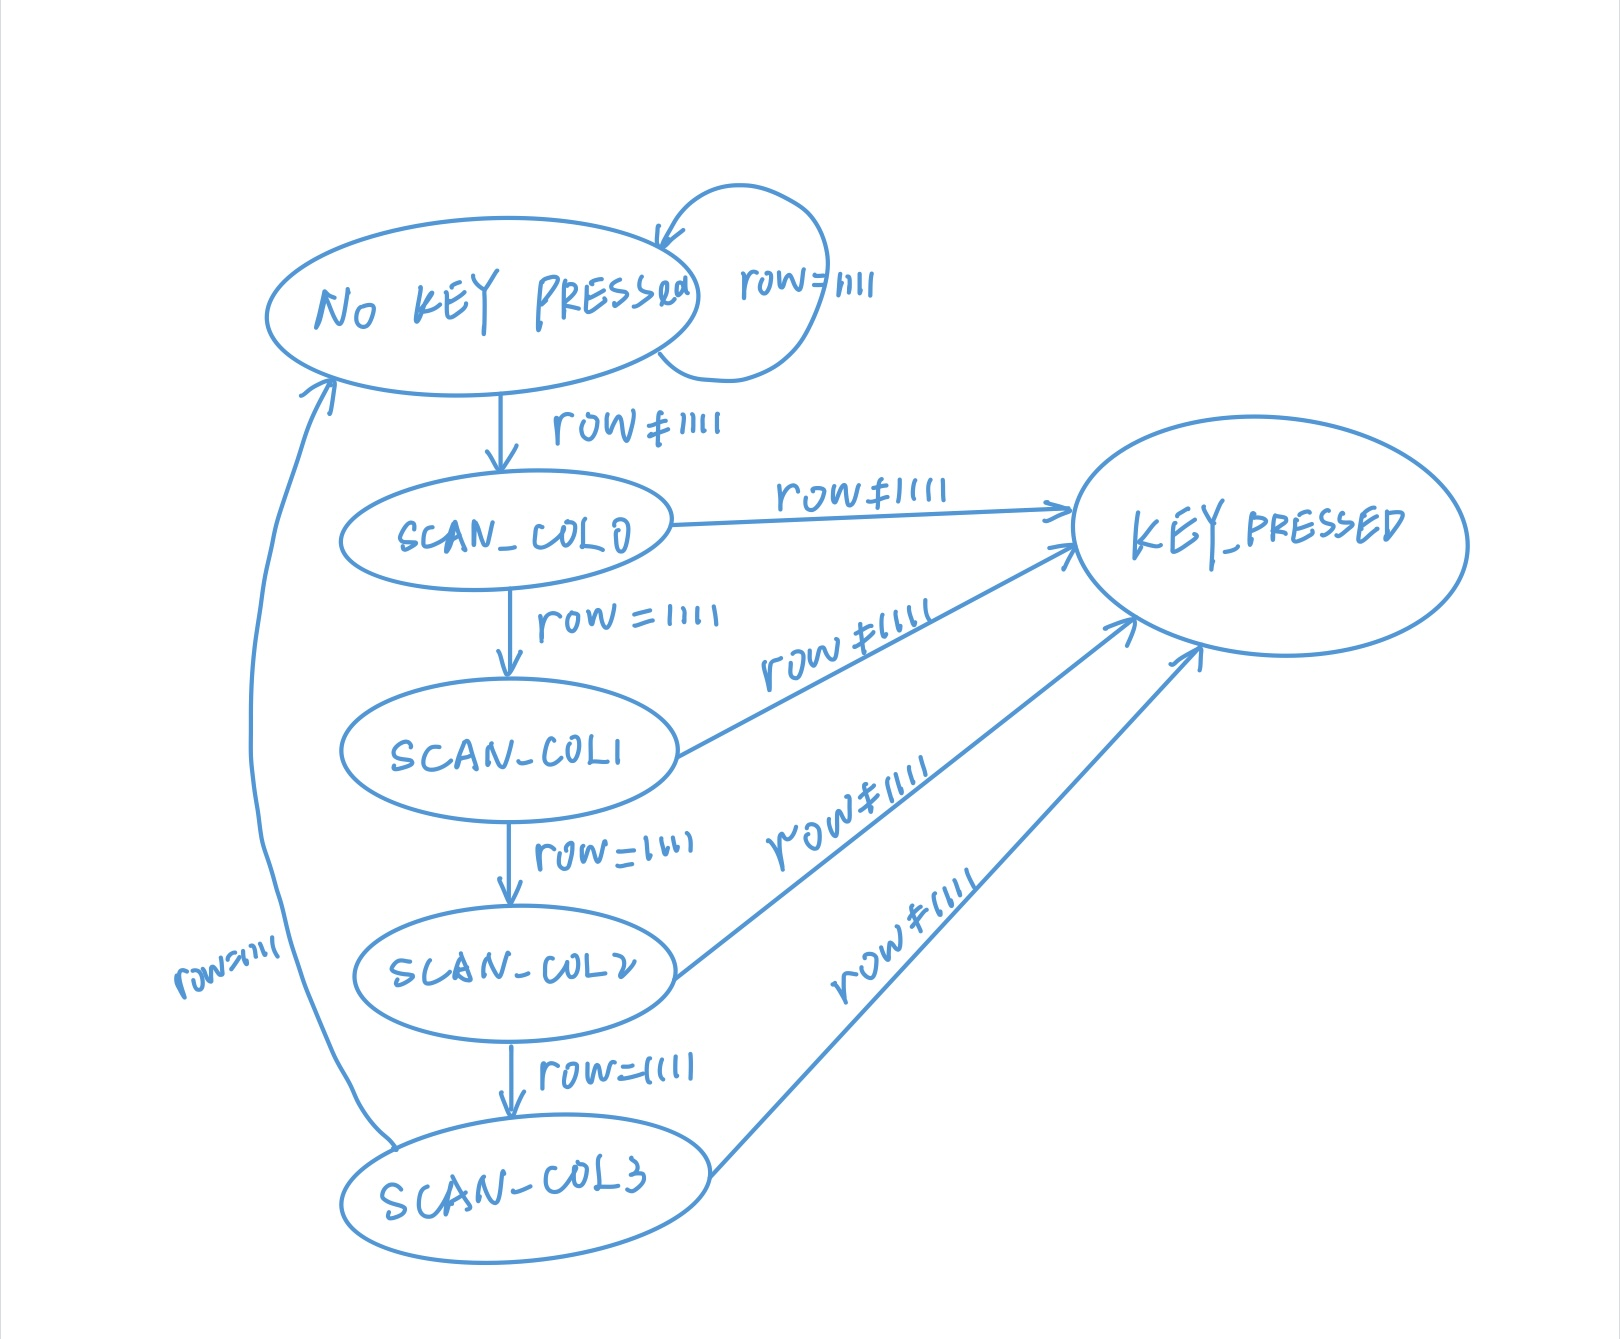 No KEY PRESSed
row=1111
row≠1111
SCAN_COL0
row≠1111
KEY_PRESSED
row=1111
row≠1111
SCAN_COL1
row=1111
row≠1111
SCAN_COL2
row=1111
row≠1111
row=1111
SCAN_COL3